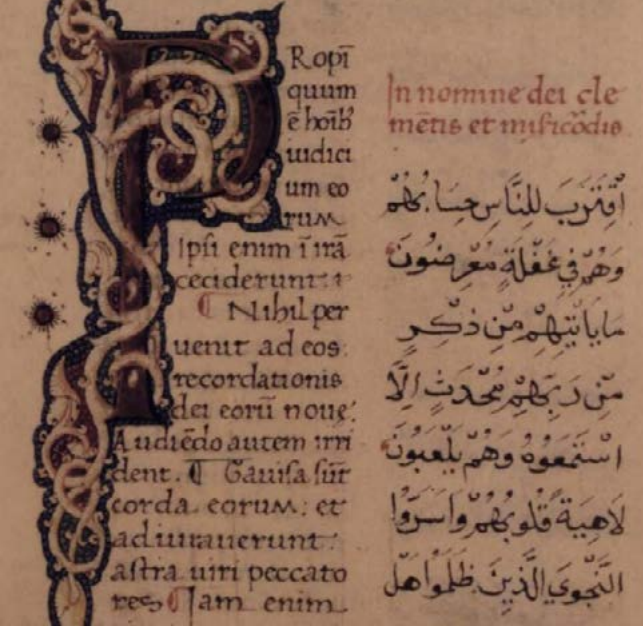 PRopī
quum
ē hoīb
iudici
um eo
rum
Ipsi enim ī irā
ceciderunt
¶ Nihil per
uenit ad eos:
recordationis
dei eorū noue:
Audiēdo autem irri
dent. ¶ Gauisa sūt
corda eorum: et
adiurauerunt:
astra uiri peccato
res ¶ Iam enim
In nomine dei cle
mētis et misicōdis
اَقْتَرَبَ لِلنَّاسِ حِسَابُهُمْ
وَهُمْ فِي غَفْلَةٍ مُعْرِضُونَ
مَا يَاتِيهِمْ مِّن ذِكْرٍ
مِّن رَبِّهِمْ مُحْدَثٍ اِلَّا
اسْتَمَعُوهُ وَهُمْ يَلْعَبُونَ
لَاهِيَةً قُلُوبُهُمْ وَاَسَرُّوا
النَّجْوَي الَّذِينَ ظَلَمُوا هَلْ